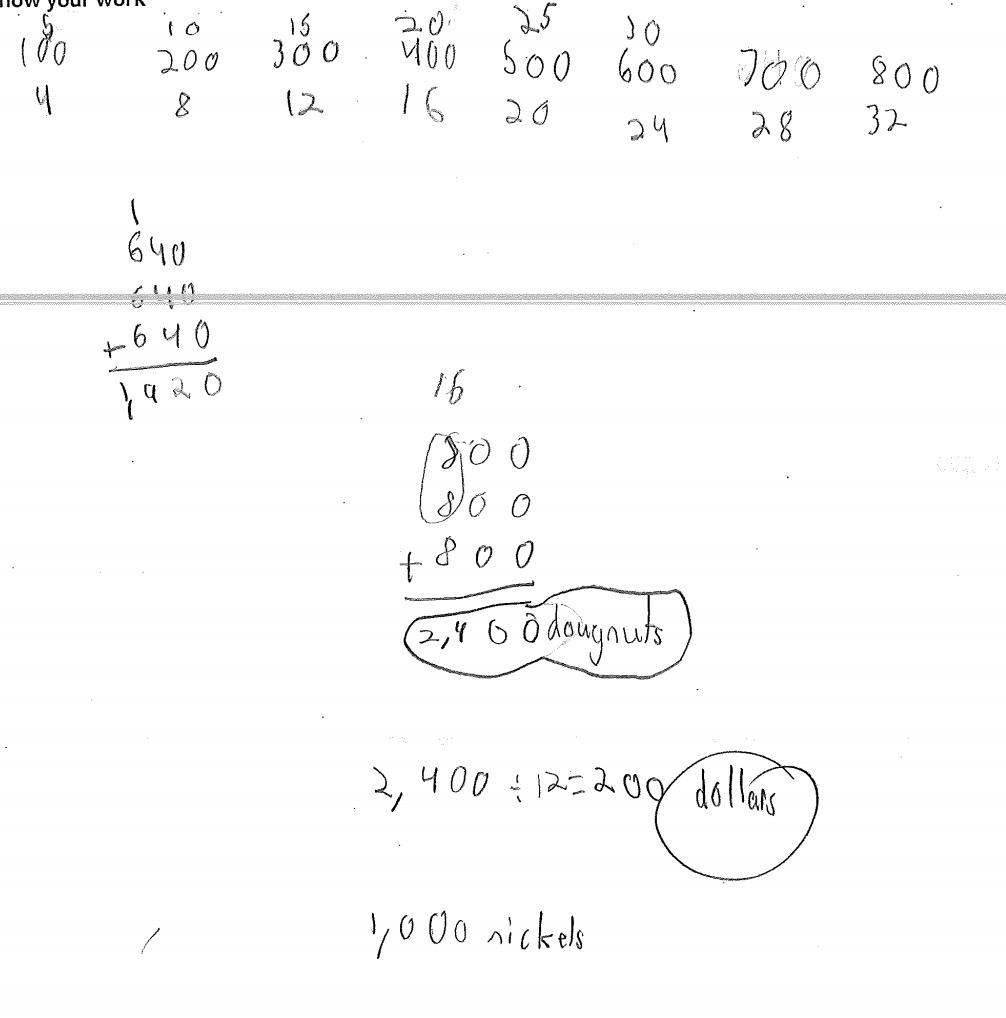 now your work
5 10 15 20 25 30
100 200 300 400 500 600 700 800
4 8 12 16 20 24 28 32
1
640
640
+640
1,920
16
800
800
+800
2,400 dougnuts
2,400 ÷ 12 = 200 dollars
1,000 nickels